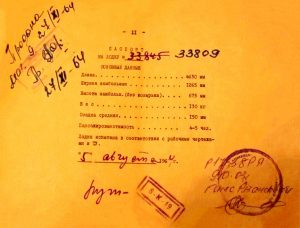 - II -
ПАСПОРТ
НА ЛОДКУ № 33845 33809
ОСНОВНЫЕ ДАННЫЕ
Длина. 4650 мм
Ширина наибольшая. 1265 мм
Высота наибольш. (без козырька). 675 мм
Вес. 150 кг
Осадка средняя. 150 мм
Пассажировместимость. 4-5 чел.
Лодка испытана в соответствии с рабочими чертежа-
ми и ТУ.
5 август
S.K. 19
27/XI-64
27/XI 64